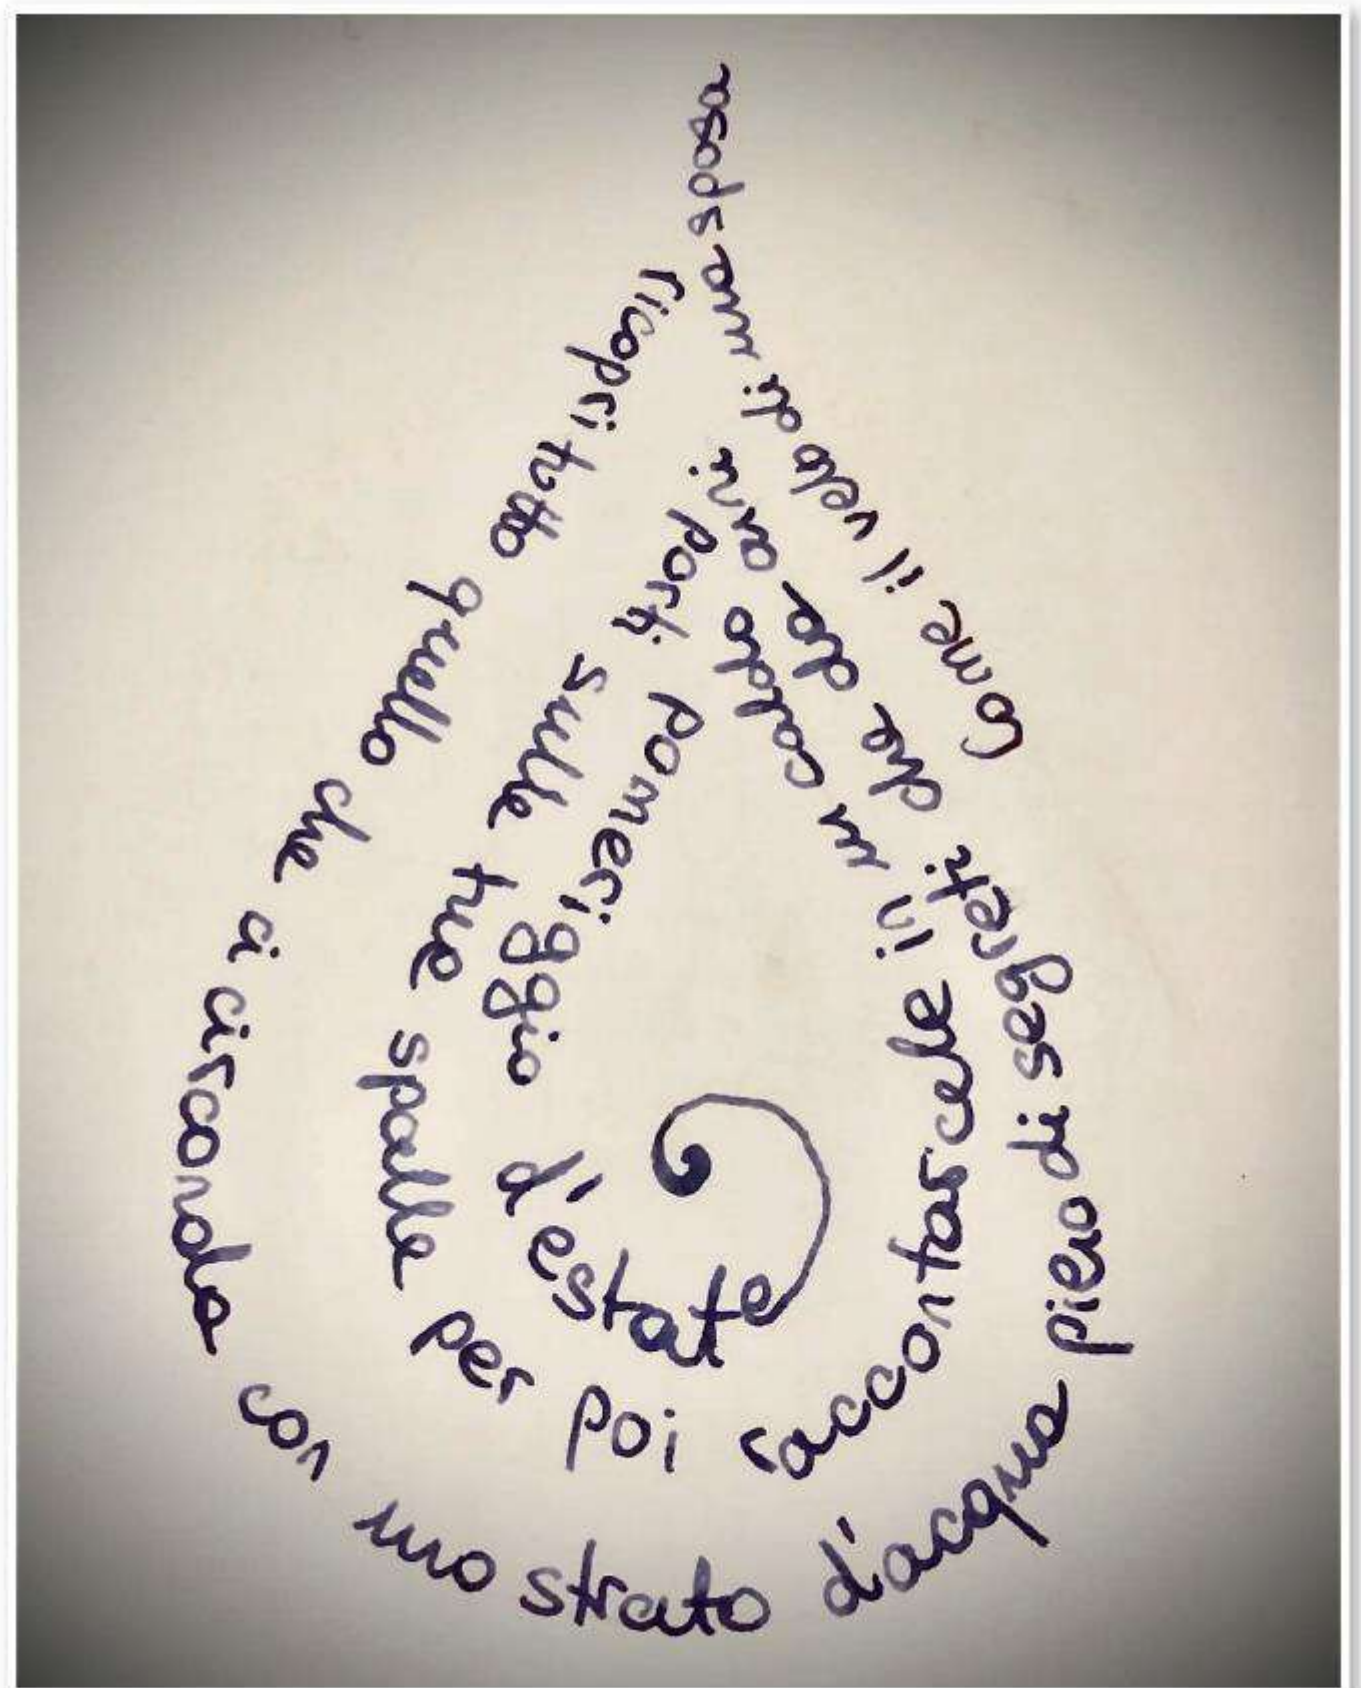 Come il velo di una sposa
ricopri tutto quello che ci circonda con uno strato d'acqua pieno di segreti che da anni
porti sulle tue spalle per poi raccontarcele in un caldo
pomeriggio d'estate